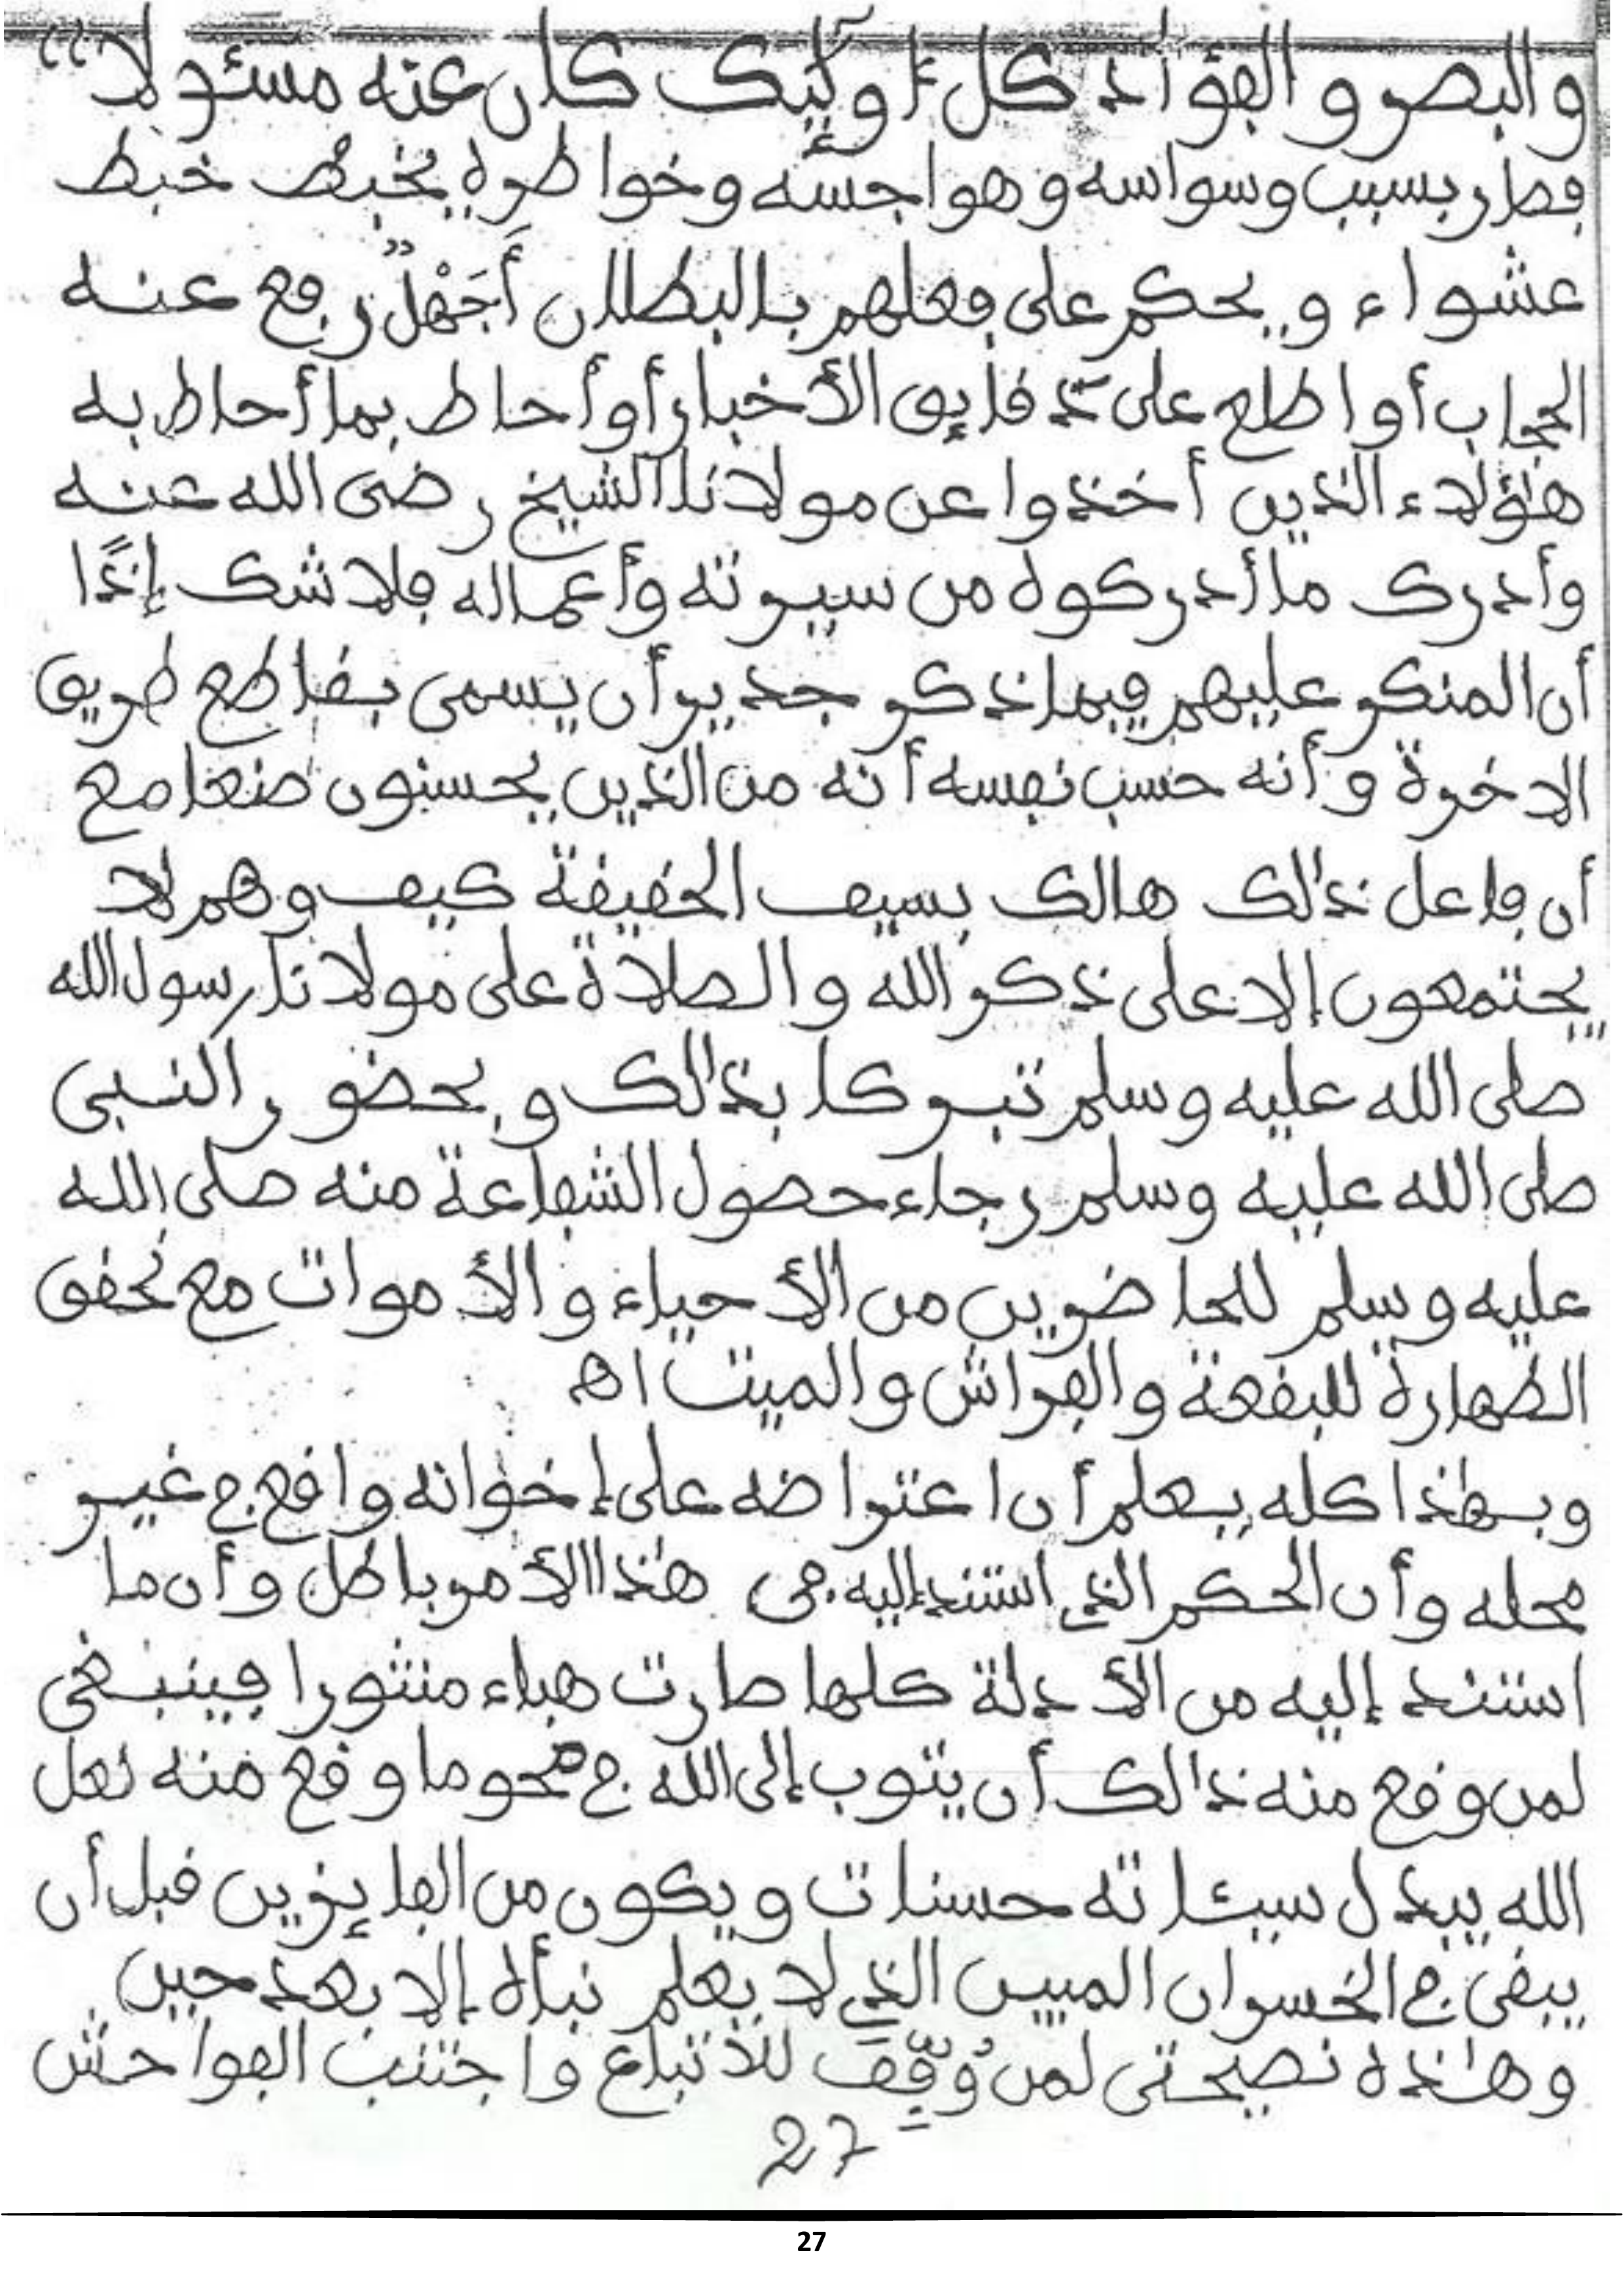 والبصر والفؤاد كل أولئك كان عنه مسئولا"
فصار بسبب وسواسه وهواجسه وخواطره يخبط خبط
عشواء ويحكم على فعلهم بالبطلان أَجَهْلٌ رفع عنه
الحجاب أو اطلع على دقائق الأخبار أو أحاط بما أحاط به
هؤلاء الذين أخذوا عن مولانا الشيخ رضى الله عنه
وأدرك ما أدركوه من سيرته وأعماله فلا شك إذًا
أن المنكر عليهم فيما ذكر جدير أن يسمى بقاطع طريق
الاخرة وأنه حسب نفسه أنه من الذين يحسنون صنعا مع
أن فاعل ذالك هالك بسيف الحقيقة كيف وهم لا
يجتمعون إلا على ذكر الله والصلاة على مولانا رسول الله
صلى الله عليه وسلم تبركا بذالك وبحضور النبى
صلى الله عليه وسلم رجاء حصول الشفاعة منه صلى الله
عليه وسلم للحاضرين من الأحياء والأموات مع تحقق
الطهارة للبقعة والفراش والميت اه
وبهذا كله يعلم أن اعتراضه على إخوانه واقع في غير
محله وأن الحكم الذي استند إليه فى هذا الأمر باطل وأن ما
استند إليه من الأدلة كلها صارت هباء منثورا فينبغى
لمن وقع منه ذالك أن يتوب إلى الله في محو ما وقع منه لعل
الله يبدل سيئاته حسنات ويكون من الفائزين قبل أن
يبقى في الخسران المبين الذي لا يعلم نبأه إلا بعد حين
وهذه نصيحتى لمن وُفِّقَ للاتباع واجتنب الفواحش
27
27